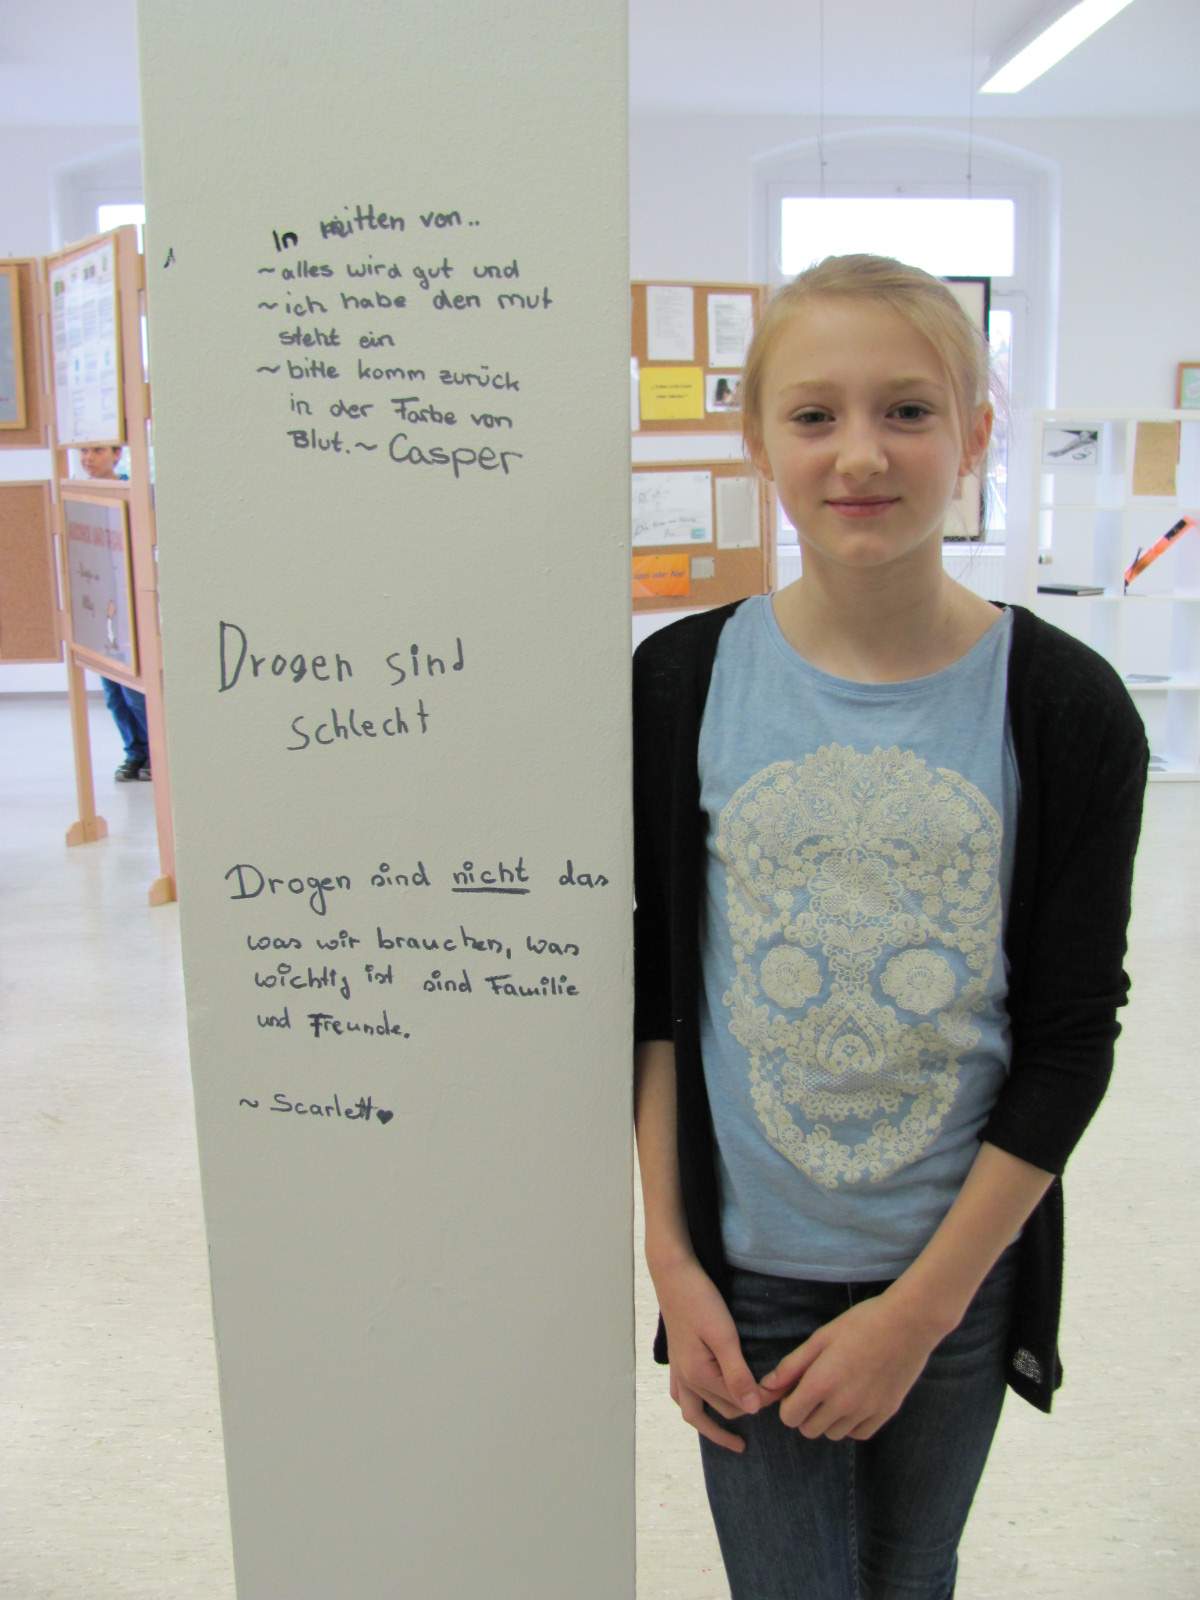 In mitten von..
~alles wird gut und
~ich habe den mut
steht ein
~bitte komm zurück
in der Farbe von
Blut.~ Casper
Drogen sind
schlecht
Drogen sind nicht das
was wir brauchen, was
wichtig ist sind Familie
und Freunde.
~ Scarlett♥